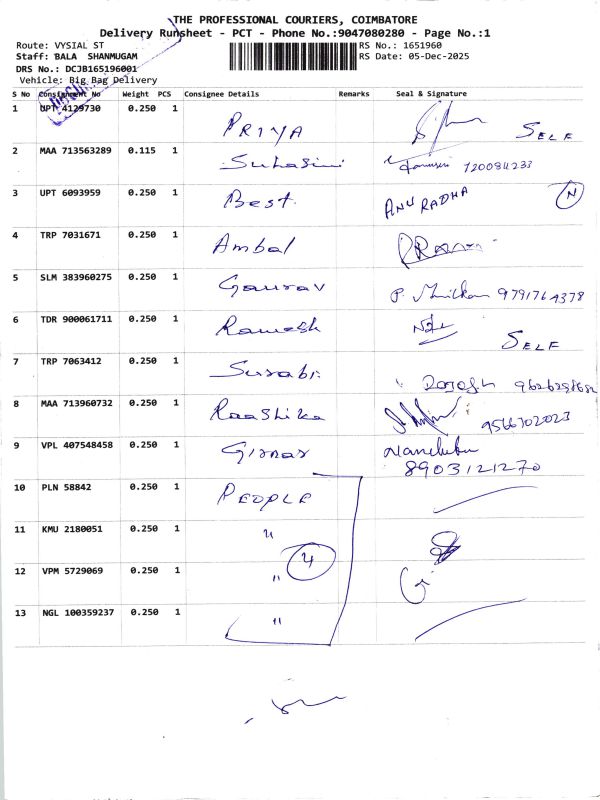 THE PROFESSIONAL COURIERS, COIMBATORE
Delivery Runsheet - PCT - Phone No.:9047080280 - Page No.:1
Route: VYSIAL ST
RS No.: 1651960
Staff: BALA SHANMUGAM
RS Date: 05-Dec-2025
DRS No.: DCJB165196001
Vehicle: Big Bag Delivery
S No Consignment No Weight PCS Consignee Details Remarks Seal & Signature
1 UPT 4129730 0.250 1 PRIYA SELF
2 MAA 713563289 0.115 1 Suhasini
3 UPT 6093959 0.250 1 Best. ANURADHA N
4 TRP 7031671 0.250 1 Ambal
5 SLM 383960275 0.250 1 Gaurav P. 9791764378
6 TDR 900061711 0.250 1 Ramesh SELF
7 TRP 7063412 0.250 1 Surabi
8 MAA 713960732 0.250 1 Raashika 9566702023
9 VPL 407548458 0.250 1 Girnar
8903121270
10 PLN 58842 0.250 1 PEOPLE
11 KMU 2180051 0.250 1 "
4
12 VPM 5729069 0.250 1 "
13 NGL 100359237 0.250 1 "